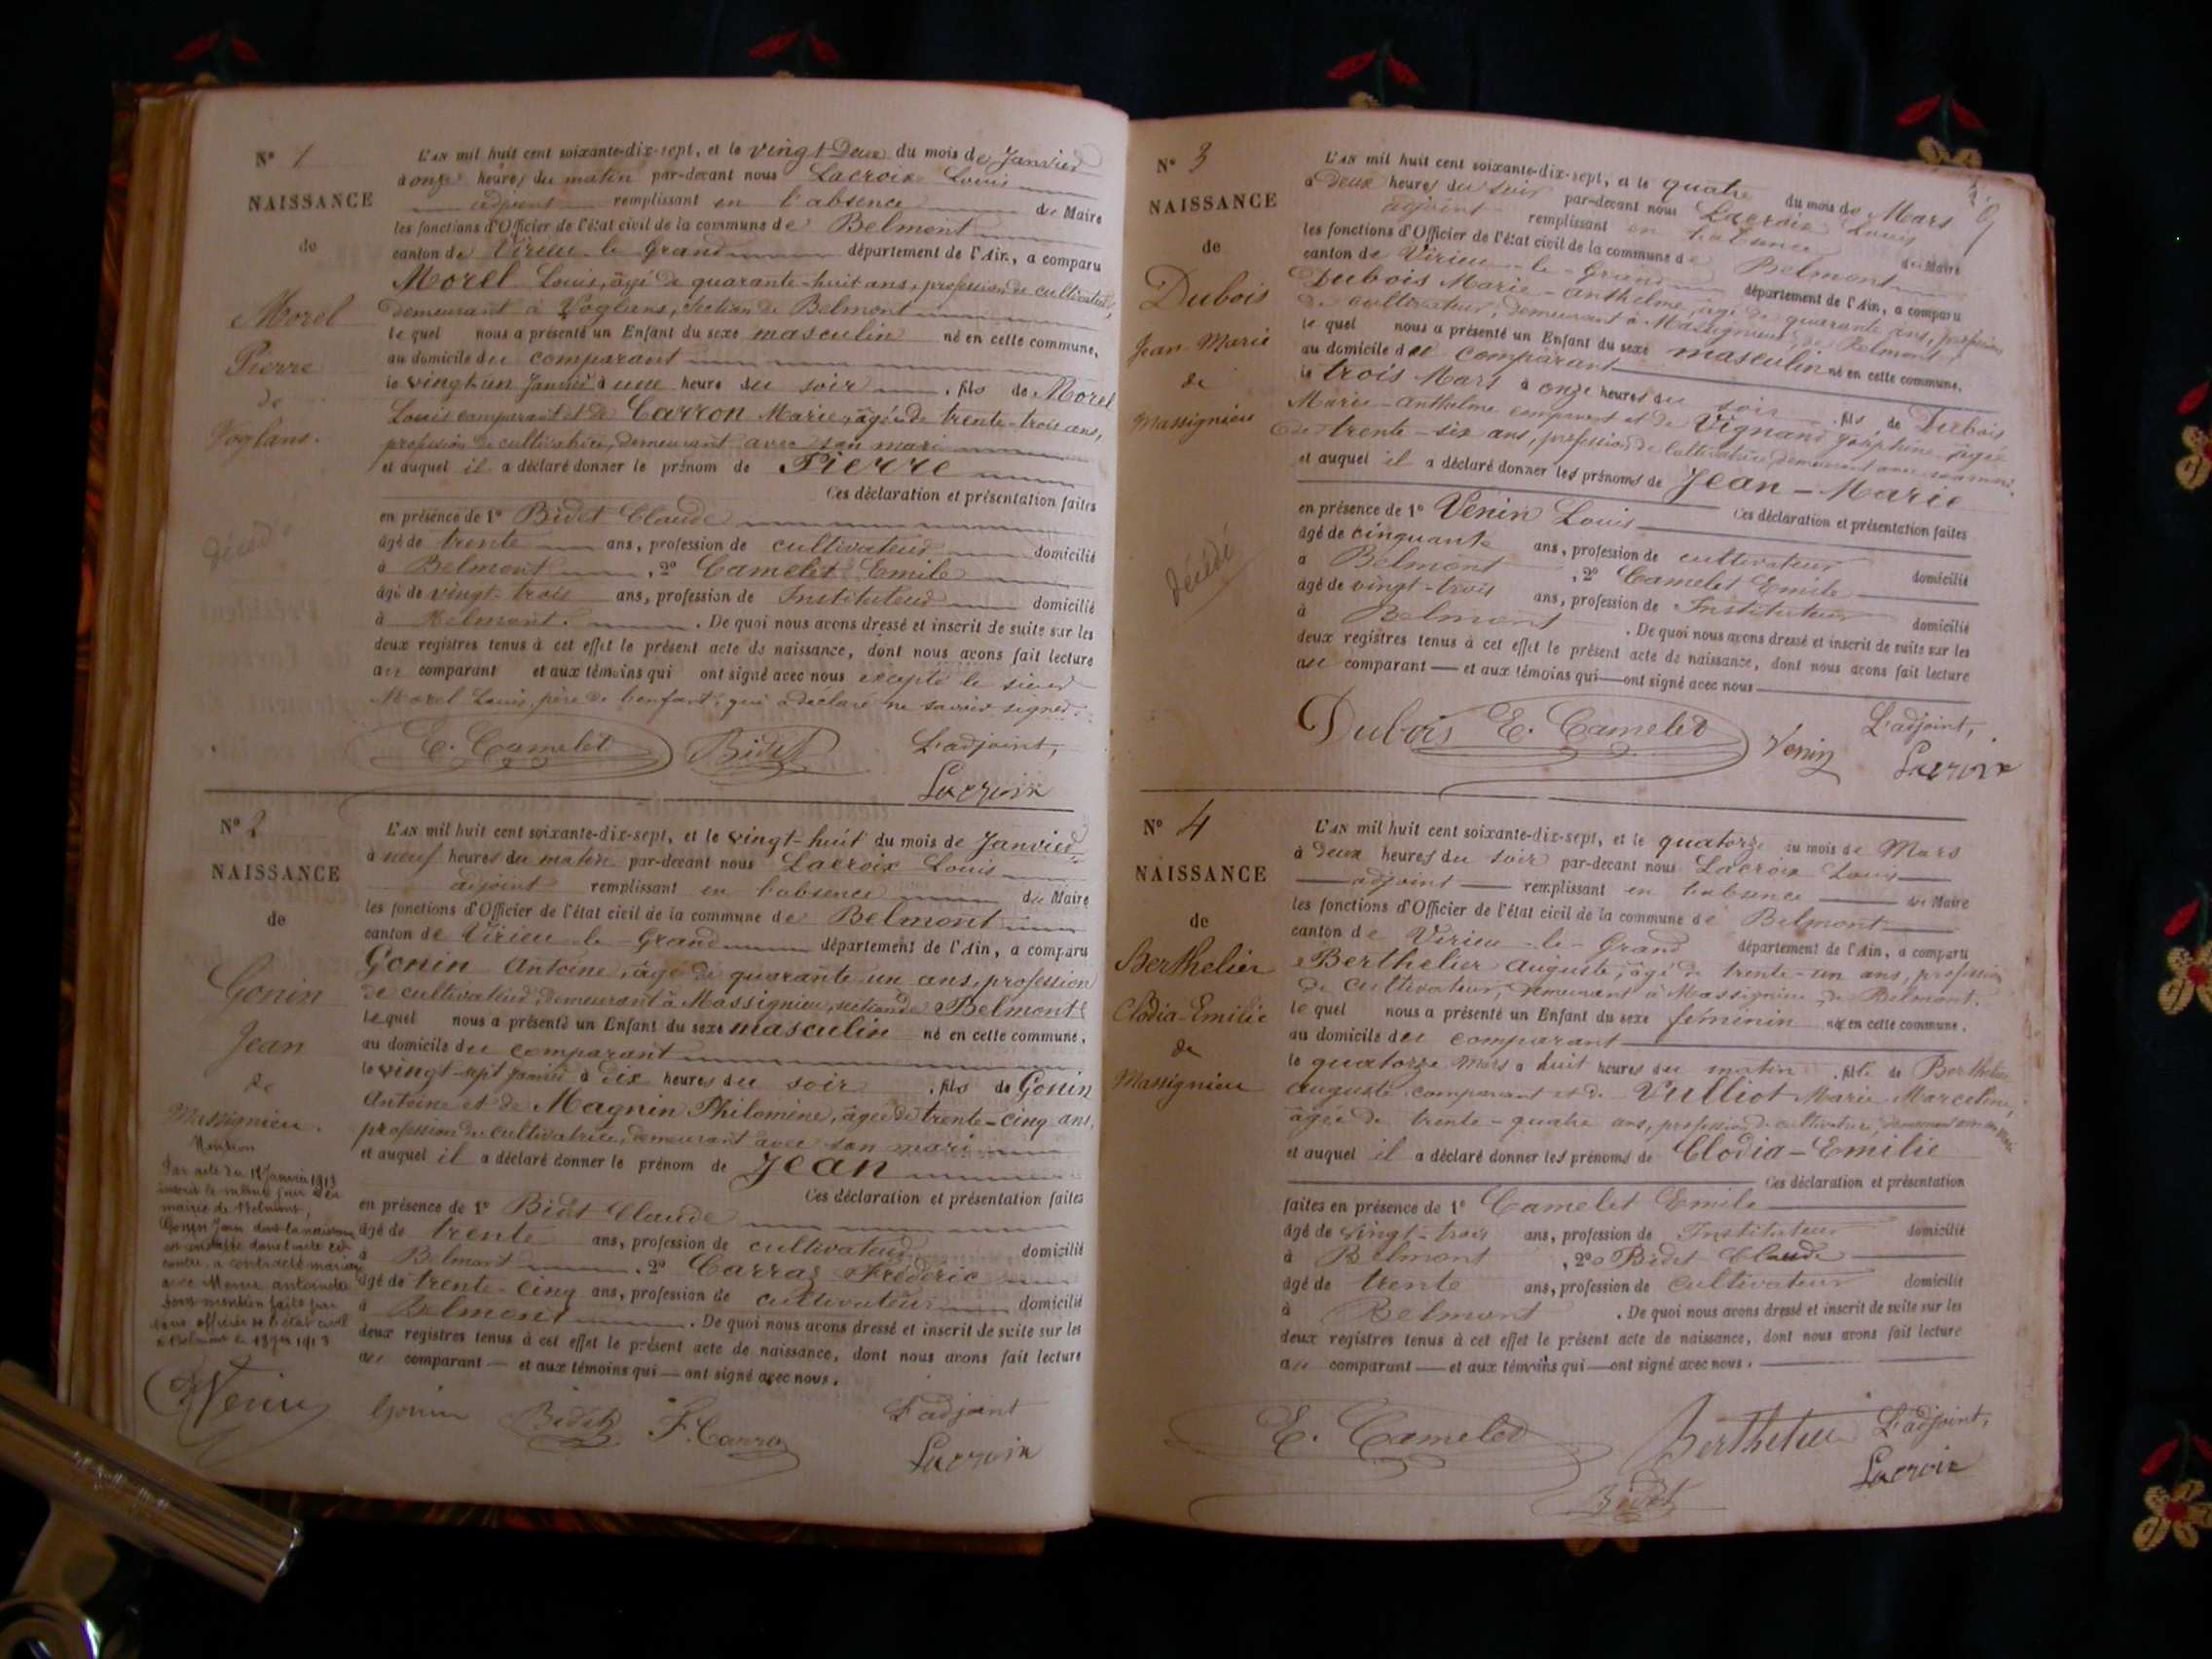 N° 1
NAISSANCE
de
Morel
Pierre
de
Voglans.
décédé
L'AN mil huit cent soixante-dix-sept, et le vingt-Deux du mois de Janvier
à onze heures du matin par-devant nous Lacroix Louis
adjoint remplissant en l'absence du Maire
les fonctions d'Officier de l'état civil de la commune de Belmont
canton de Virieu-le-Grand département de l'Ain, a comparu
Morel Louis, âgé de quarante-huit ans, profession de cultivateur,
demeurant à Voglans, section de Belmont
lequel nous a présenté un Enfant du sexe masculin né en cette commune,
au domicile du comparant
le vingt-un Janvier à une heure du soir, fils de Morel
Louis comparant et de Carron Marie, âgée de trente-trois ans,
profession de cultivatrice, demeurant avec son mari
et auquel il a déclaré donner le prénom de Pierre
Ces déclaration et présentation faites
en présence de 1° Bidet Claude
âgé de trente ans, profession de cultivateur domicilié
à Belmont, 2° Camelet Emile
âgé de vingt-trois ans, profession de Instituteur domicilié
à Belmont. De quoi nous avons dressé et inscrit de suite sur les
deux registres tenus à cet effet le présent acte de naissance, dont nous avons fait lecture
au comparant et aux témoins qui ont signé avec nous excepté le sieur
Morel Louis, père de l'enfant, qui a déclaré ne savoir signer.
E. Camelet Bidet L'adjoint,
Lacroix
N° 2
NAISSANCE
de
Gonin
Jean
de
Massignieu.
Mention
Par acte du 18 Janvier 1913
inscrit le même jour à la
mairie de Belmont,
Gonin Jean dont la naissance
est constatée dans l'acte ci-
contre, a contracté mariage
avec Antoinette
mention faite par
nous officier de l'état civil
à Belmont le 1913
Venin
L'AN mil huit cent soixante-dix-sept, et le vingt-huit du mois de Janvier
à neuf heures du matin par-devant nous Lacroix Louis
adjoint remplissant en l'absence du Maire
les fonctions d'Officier de l'état civil de la commune de Belmont
canton de Virieu-le-Grand département de l'Ain, a comparu
Gonin Antoine, âgé de quarante-un ans, profession
de cultivateur, demeurant à Massignieu, section de Belmont
lequel nous a présenté un Enfant du sexe masculin né en cette commune,
au domicile du comparant
le vingt-sept Janvier à dix heures du soir, fils de Gonin
Antoine et de Magnin Philomène, âgée de trente-cinq ans,
profession de cultivatrice, demeurant avec son mari
et auquel il a déclaré donner le prénom de Jean
Ces déclaration et présentation faites
en présence de 1° Bidet Claude
âgé de trente ans, profession de cultivateur domicilié
à Belmont, 2° Carraz Frédéric
âgé de trente-cinq ans, profession de cultivateur domicilié
à Belmont. De quoi nous avons dressé et inscrit de suite sur les
deux registres tenus à cet effet le présent acte de naissance, dont nous avons fait lecture
au comparant — et aux témoins qui — ont signé avec nous.
Gonin Bidet F. Carraz L'adjoint
Lacroix
N° 3
NAISSANCE
de
Dubois
Jean-Marie
de
Massignieu
décédé
L'AN mil huit cent soixante-dix-sept, et le quatre du mois de Mars
à Deux heures du soir par-devant nous Lacroix Louis
adjoint remplissant en l'absence du Maire
les fonctions d'Officier de l'état civil de la commune de Belmont
canton de Virieu-le-Grand département de l'Ain, a comparu
Dubois Marie-Anthelme, âgé de quarante ans, profession
de cultivateur, demeurant à Massignieu, de Belmont,
lequel nous a présenté un Enfant du sexe masculin né en cette commune,
au domicile du comparant
le trois Mars à onze heures du soir, fils de Dubois
Marie-Anthelme comparant et de Vignand Joséphine âgée
de trente-six ans, profession de cultivatrice demeurant avec son mari.
et auquel il a déclaré donner les prénoms de Jean-Marie
Ces déclaration et présentation faites
en présence de 1° Venin Louis
âgé de cinquante ans, profession de cultivateur domicilié
à Belmont, 2° Camelet Emile
âgé de vingt-trois ans, profession de Instituteur domicilié
à Belmont. De quoi nous avons dressé et inscrit de suite sur les
deux registres tenus à cet effet le présent acte de naissance, dont nous avons fait lecture
au comparant — et aux témoins qui — ont signé avec nous
Dubois E. Camelet Venin L'adjoint,
Lacroix
N° 4
NAISSANCE
de
Berthelier
Clodia-Emilie
de
Massignieu
L'AN mil huit cent soixante-dix-sept, et le quatorze du mois de Mars
à deux heures du soir par-devant nous Lacroix Louis
adjoint remplissant en l'absence du Maire
les fonctions d'Officier de l'état civil de la commune de Belmont
canton de Virieu-le-Grand département de l'Ain, a comparu
Berthelier Auguste, âgé de trente-un ans, profession
de cultivateur, demeurant à Massignieu, de Belmont.
lequel nous a présenté un Enfant du sexe féminin né en cette commune,
au domicile du comparant
le quatorze Mars à huit heures du matin, fille de Berthelier
Auguste comparant et de Vulliot Marie Marceline,
âgée de trente-quatre ans, profession de cultivatrice, demeurant avec son mari
et auquel il a déclaré donner les prénoms de Clodia-Emilie
Ces déclaration et présentation
faites en présence de 1° Camelet Emile
âgé de vingt-trois ans, profession de Instituteur domicilié
à Belmont, 2° Bidet Claude
âgé de trente ans, profession de Cultivateur domicilié
à Belmont. De quoi nous avons dressé et inscrit de suite sur les
deux registres tenus à cet effet le présent acte de naissance, dont nous avons fait lecture
au comparant — et aux témoins qui — ont signé avec nous.
E. Camelet Berthelier L'adjoint,
Bidet Lacroix